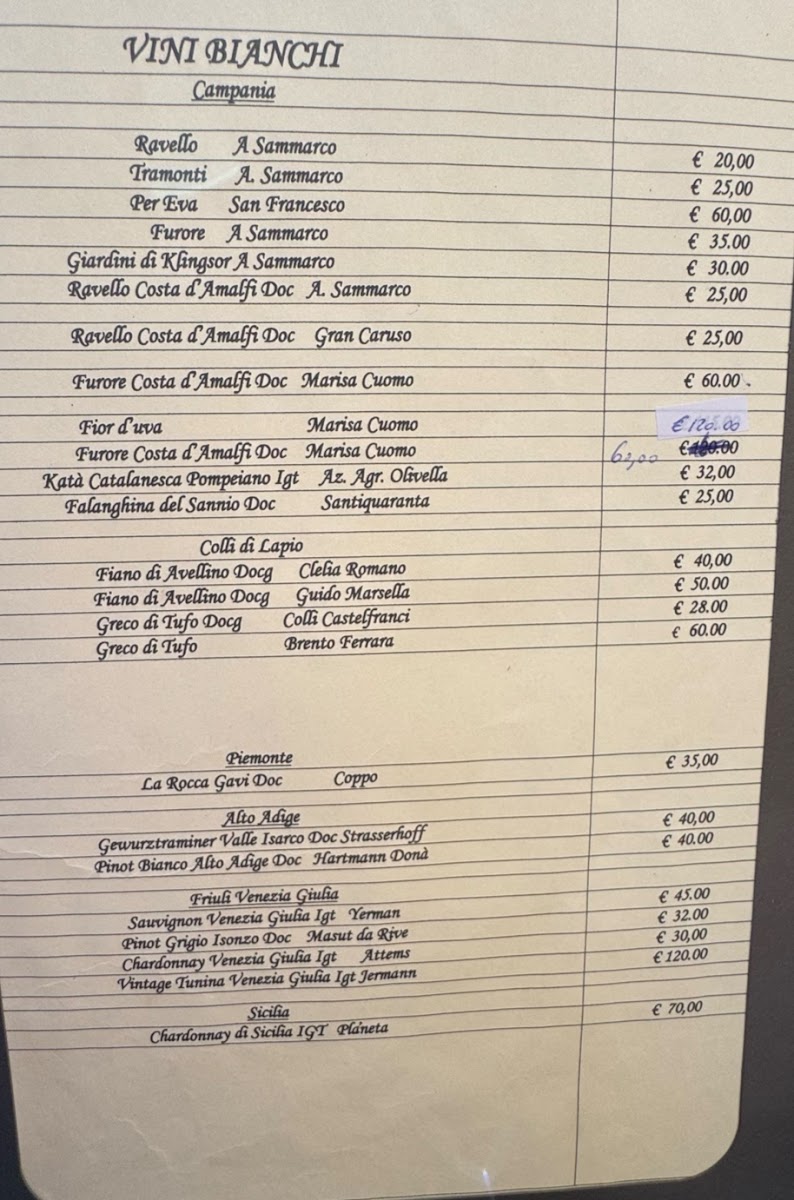 VINI BIANCHI
Campania
Ravello A Sammarco € 20,00
Tramonti A. Sammarco € 25,00
Per Eva San Francesco € 60,00
Furore A Sammarco € 35.00
Giardini di Klingsor A Sammarco € 30.00
Ravello Costa d'Amalfi Doc A. Sammarco € 25,00
Ravello Costa d'Amalfi Doc Gran Caruso € 25,00
Furore Costa d'Amalfi Doc Marisa Cuomo € 60.00
Fior d'uva Marisa Cuomo € 120.00
Furore Costa d'Amalfi Doc Marisa Cuomo 62,00 €
Katà Catalanesca Pompeiano Igt Az. Agr. Olivella € 32,00
Falanghina del Sannio Doc Santiquaranta € 25,00
Colli di Lapio
Fiano di Avellino Docg Clelia Romano € 40,00
Fiano di Avellino Docg Guido Marsella € 50.00
Greco di Tufo Docg Colli Castelfranci € 28.00
Greco di Tufo Brento Ferrara € 60.00
Piemonte
La Rocca Gavi Doc Coppo € 35,00
Alto Adige
Gewurztraminer Valle Isarco Doc Strasserhoff € 40,00
Pinot Bianco Alto Adige Doc Hartmann Donà € 40.00
Friuli Venezia Giulia
Sauvignon Venezia Giulia Igt Yerman € 45.00
Pinot Grigio Isonzo Doc Masut da Rive € 32.00
Chardonnay Venezia Giulia Igt Attems € 30,00
Vintage Tunina Venezia Giulia Igt Jermann € 120.00
Sicilia
Chardonnay di Sicilia IGT Planeta € 70,00